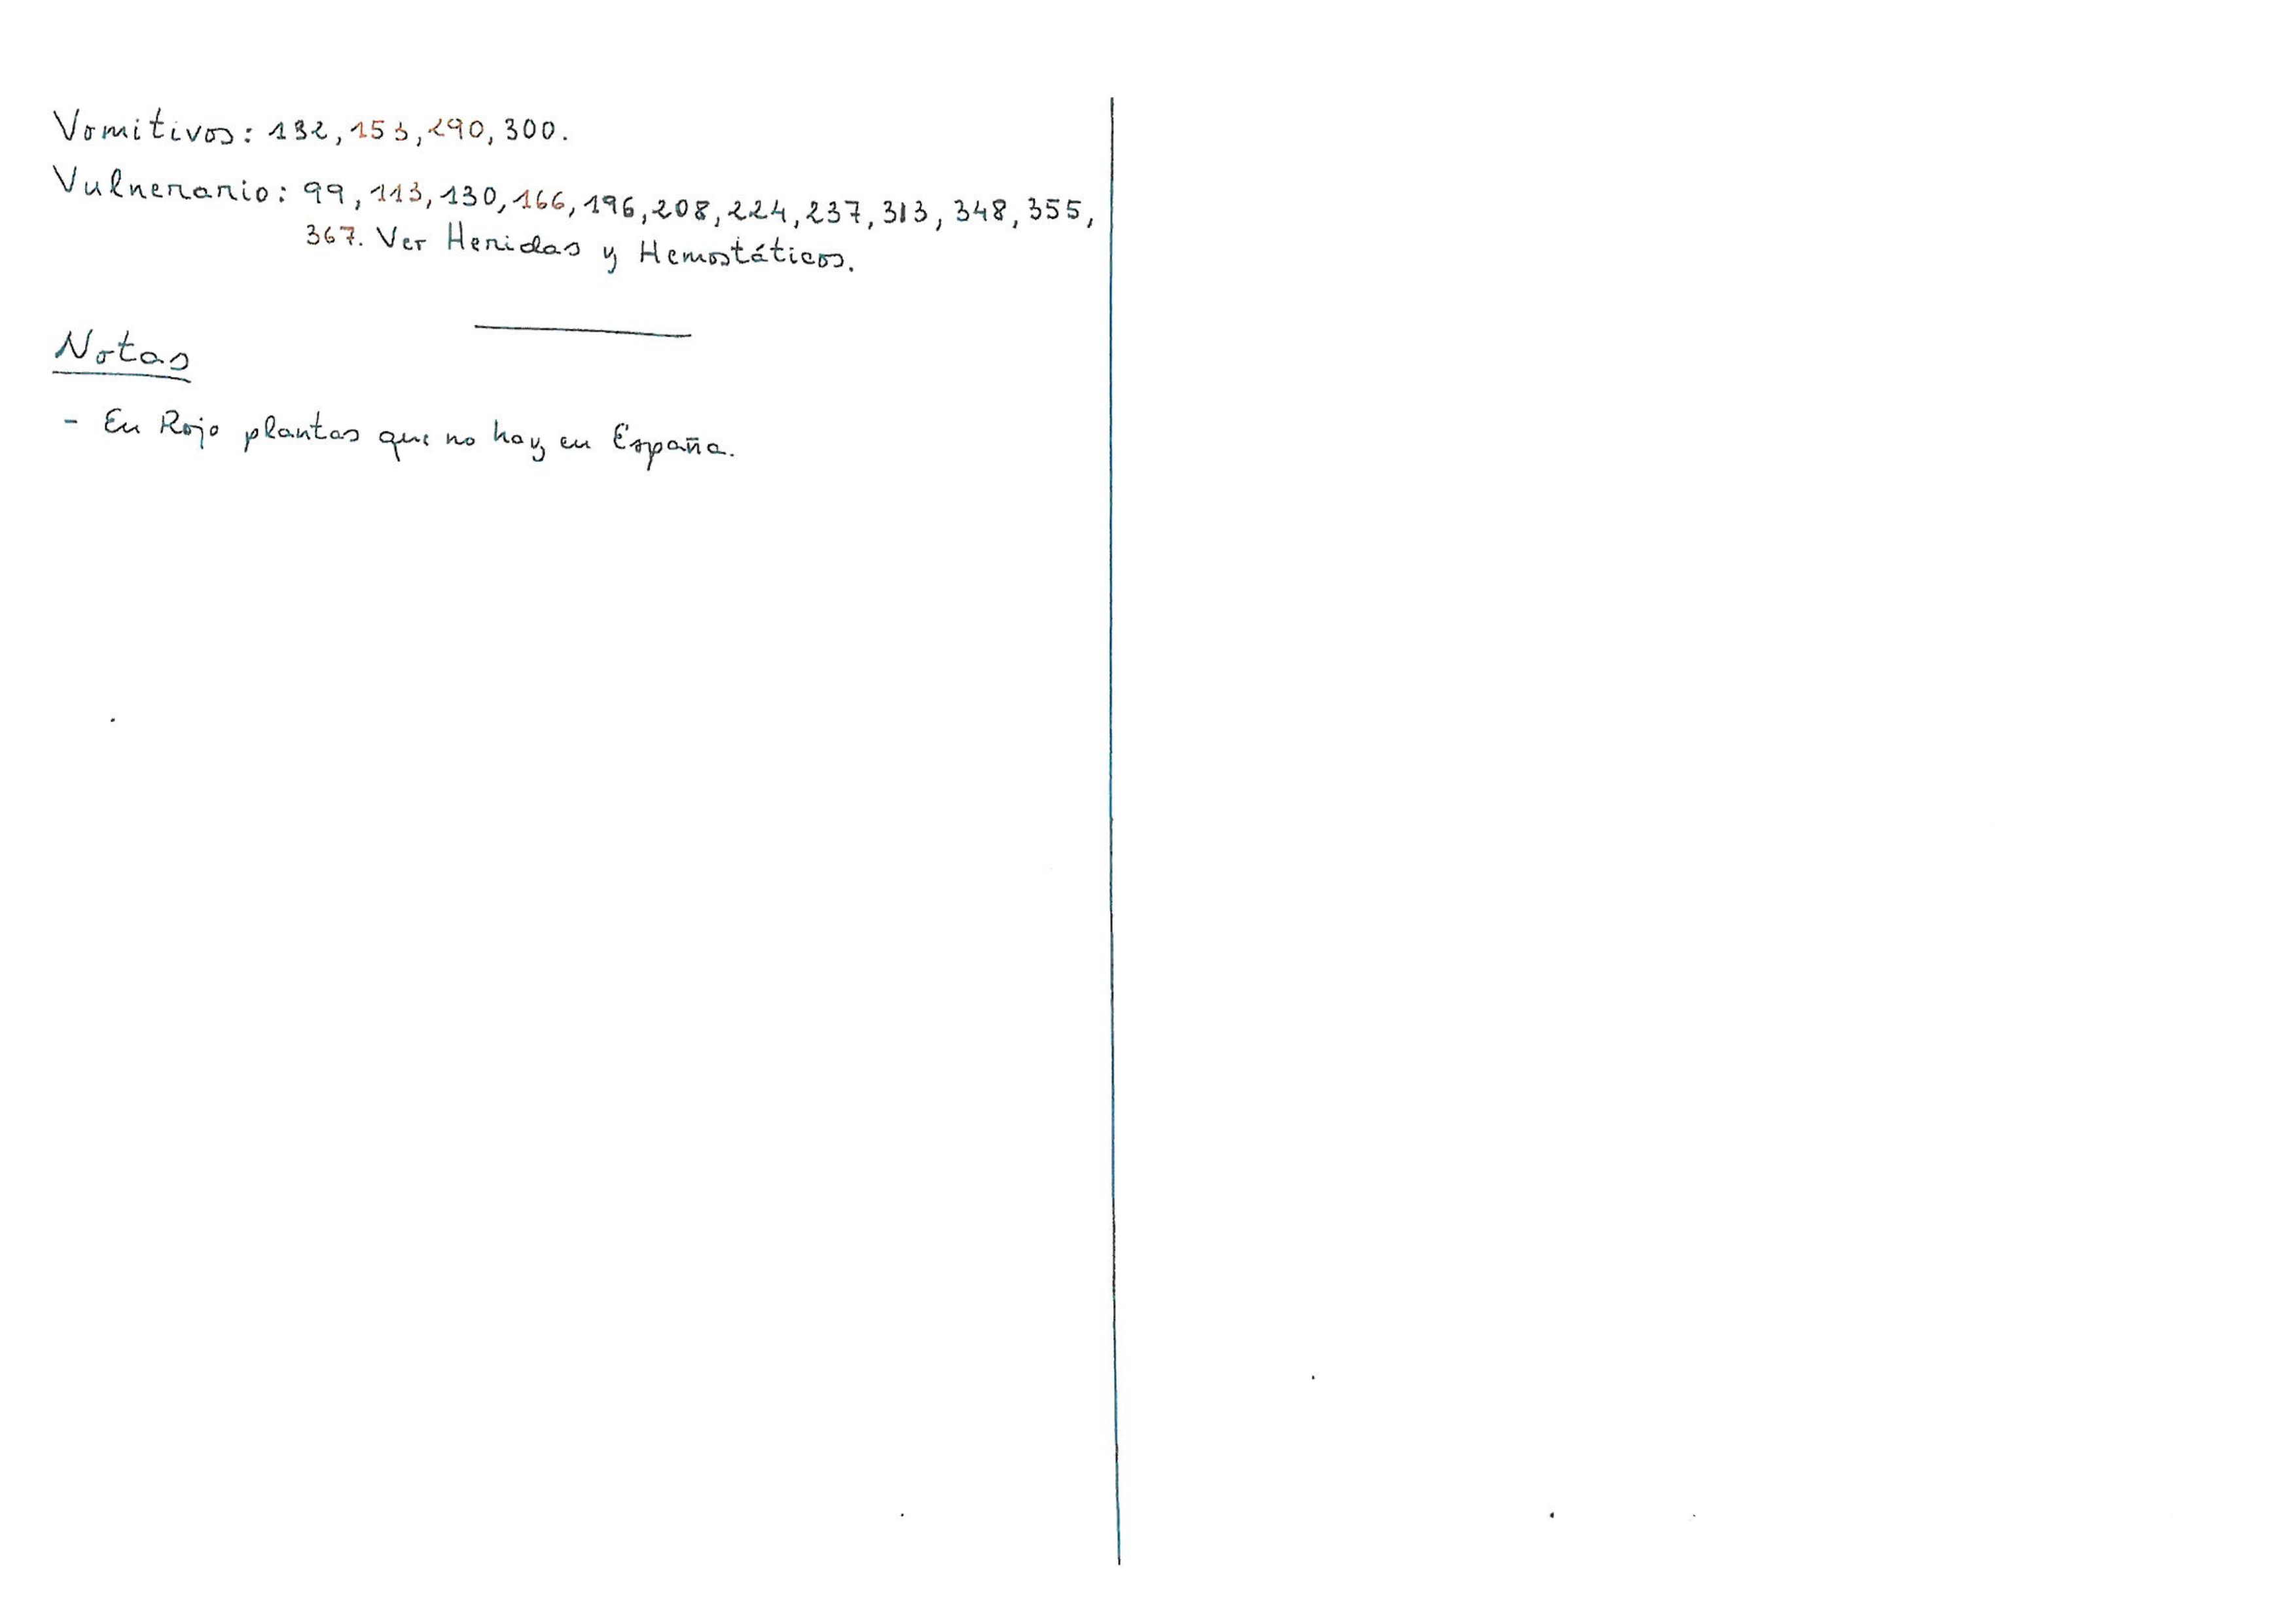 Vomitivos: 132, 153, 290, 300.
Vulnerario: 99, 113, 130, 166, 196, 208, 224, 237, 313, 348, 355,
367. Ver Heridas y Hemostáticos.
Notas
- En Rojo plantas que no hay en España.